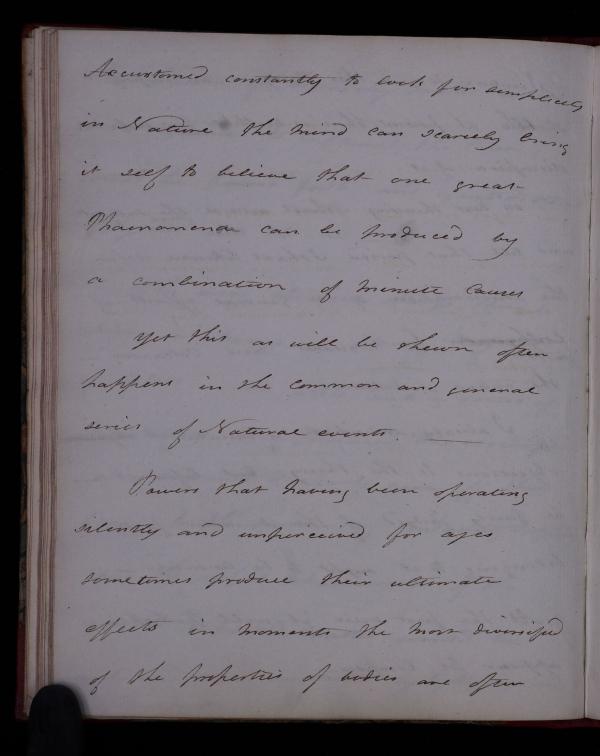 Accustomed constantly to look for simplicity
in Nature the mind can scarcely bring
it self to believe that one great
Phaenomena can be produced by
a combination of minute causes
yet this as will be shewn often
happens in the common and general
series of Natural events.
Powers that having been operating
silently and unperceived for ages
sometimes produce their ultimate
effects in moments the most diversified
of the properties of bodies are often